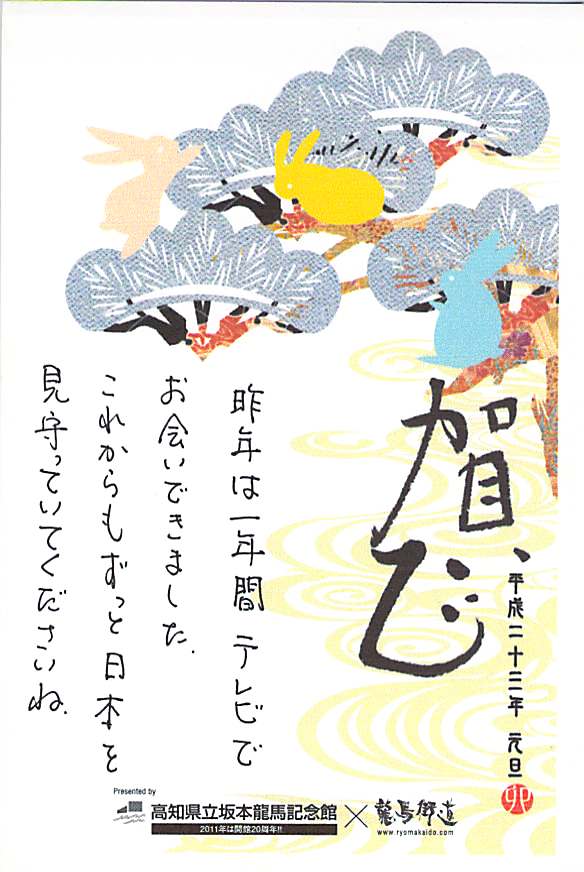 賀び
平成二十三年 元旦
卯
昨年は一年間 テレビで
お会いできました。
これからもずっと日本を
見守っていてくださいね。
Presented by
高知県立坂本龍馬記念館 × 龍馬街道
2011年は開館20周年!!
www.ryomakaido.com